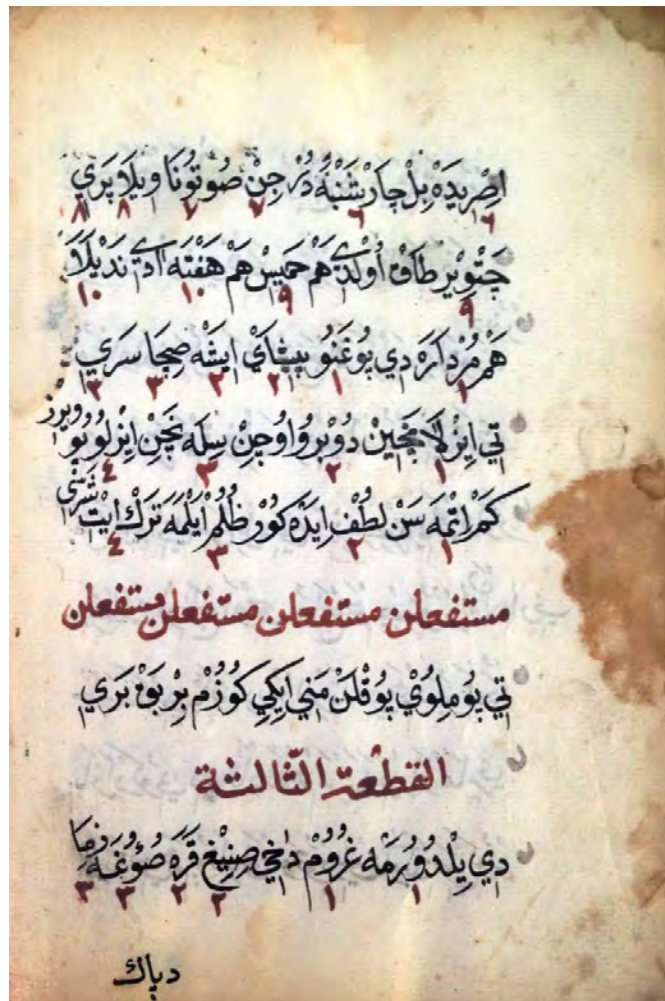 اِصْرِيدَهْ بِلْ چَارْشَنْبَهْ دُرْ جِنْ صُوتُونَا وِيلَا پَرِي
٦ ٦ ٧ ٧ ٨ ٨
چَتْوِيرْطَاقْ اُولْدِي هَمْ خَمِيسْ هَمْ هَفْتَه اَدِي نَدِيْلَا
٩ ٩ ١٠ ١٠
هَمْ مُرْدَارَه دِي پُوغَنُو پِيشَايْ اِيشَهْ صِچَا سَرِي
١ ١ ٢ ٢ ٣ ٣
تِي اِيزْلَا نَچِينْ دُوبْرُو اُوچِنْ سِلَه نَچِنْ اِيزْلُو بُو وِيرْزْ
١ ٢ ٣ ٤
كَمْ اِتْمَه سَنْ لُطْف اِيدَه كُورْ ظُلُمْ اَيْلَمَه تَرْك اِيتْ شَرِّي
١ ٢ ٣ ٤
مستفعلن مستفعلن مستفعلن مستفعلن
تِي پُومِلُويْ پُوقْلَنْ مَنِي اِيكِي كُوزُمْ بِرْ بَقْ بَرِي
القطعة الثّالثة
دِي يِلْدُورُمَه غُرُومْ دَاخِي صِنِيغْ قَرَه صُوغَه زِمَا
١ ١ ٢ ٢ ٣ ٣
دپاك